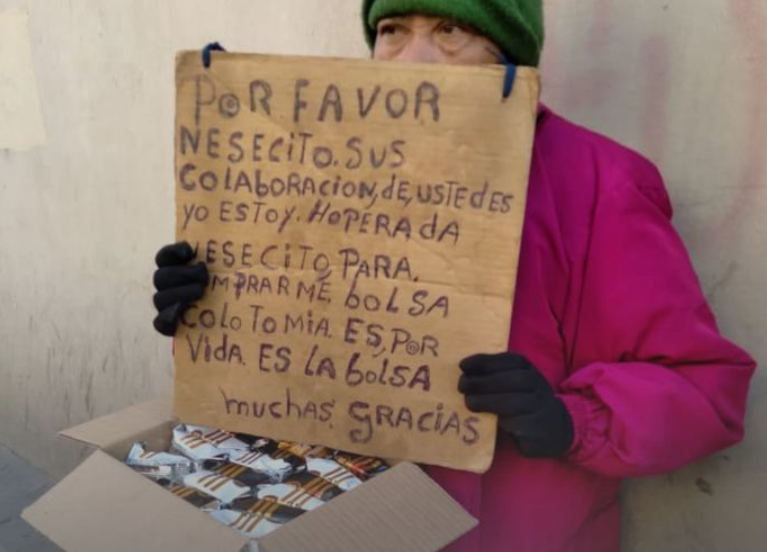 POR FAVOR
NESECITO. SUS
COLABORACION, dE, USTEdES
YO ESTOY. HOPERADA
NESECITO PARA.
MPRARME bOLSA
COLOTOMIA. ES, POR
Vida. ES LA bOLSA
muchas. GRACIAS